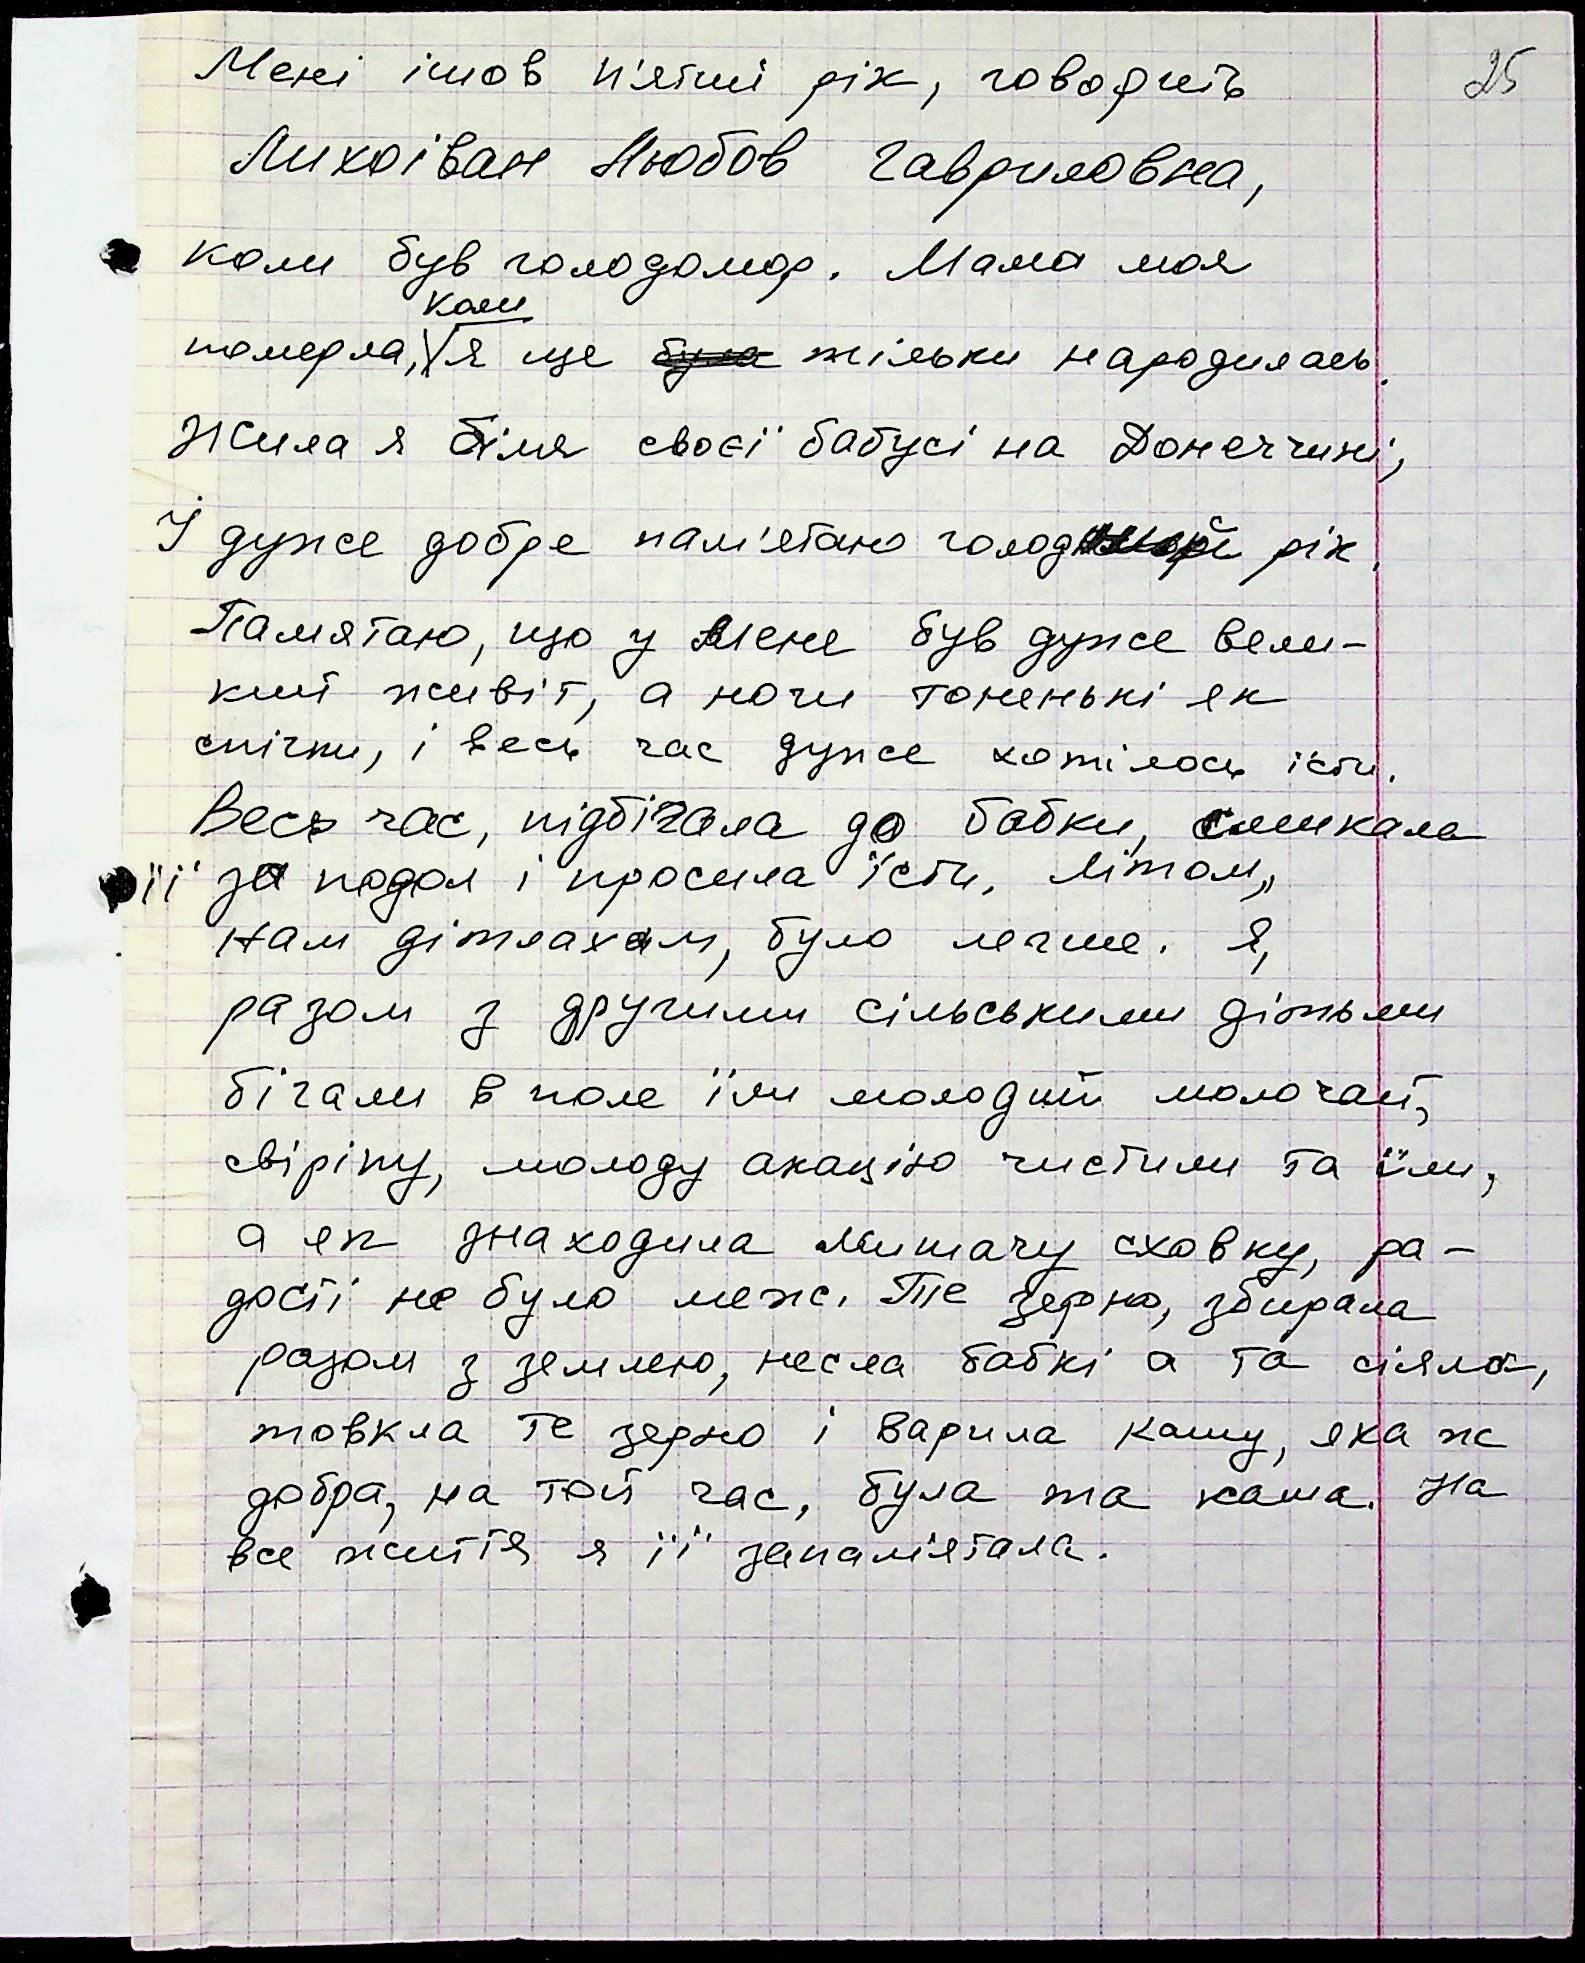 25
Мені ішов п'ятий рік, говорить
Лихоіван Любов Гавриловна,
коли був голодомор. Мама моя
коли
померла, я ще була тільки народилась.
Жила я біля своєї бабусі на Донеччині,
І дуже добре пам'ятаю голодний рік.
Памятаю, що у мене був дуже вели-
кий живіт, а ноги тоненькі як
спічки, і весь час дуже хотілось їсти.
Весь час, підбігала до бабки, смикала
її за подол і просила їсти. Літом,
нам дітлахам, було легше. Я,
разом з другими сільськими дітьми
бігали в поле їли молодий молочай,
свіріпу, молоду акацію чистили та їли,
а як знаходила мишачу сховку, ра-
дості не було меж. Те зерно, збирала
разом з землею, несла бабкі а та сіяла,
товкла те зерно і варила кашу, яка ж
добра, на той час, була та каша. На
все життя я її запам'ятала.